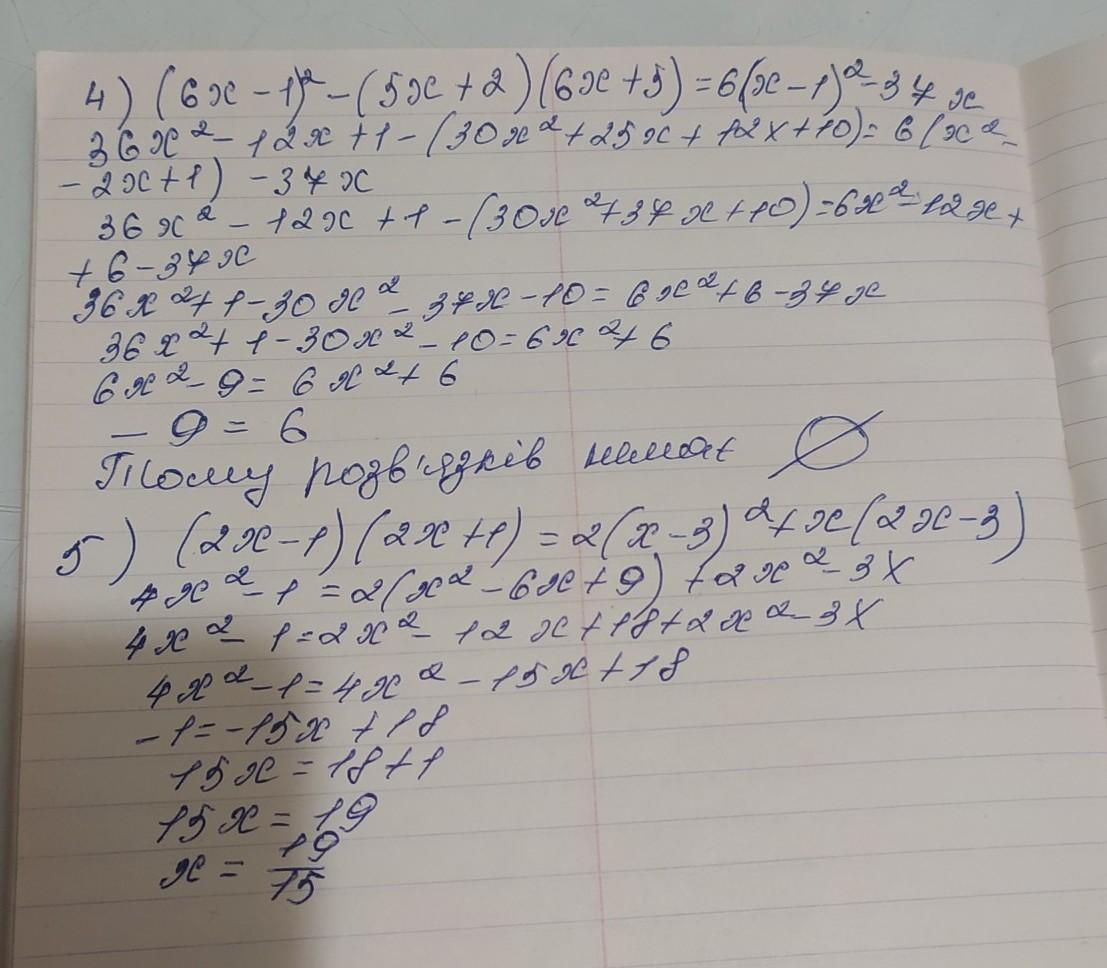 4) (6x - 1)² - (5x + 2)(6x + 5) = 6(x - 1)² - 37x
36x² - 12x + 1 - (30x² + 25x + 12x + 10) = 6(x² -
- 2x + 1) - 37x
36x² - 12x + 1 - (30x² + 37x + 10) = 6x² - 12x +
+ 6 - 37x
36x² + 1 - 30x² - 37x - 10 = 6x² + 6 - 37x
36x² + 1 - 30x² - 10 = 6x² + 6
6x² - 9 = 6x² + 6
- 9 = 6
Тому розв'язків немає ∅
5) (2x - 1)(2x + 1) = 2(x - 3)² + x(2x - 3)
4x² - 1 = 2(x² - 6x + 9) + 2x² - 3x
4x² - 1 = 2x² - 12x + 18 + 2x² - 3x
4x² - 1 = 4x² - 15x + 18
- 1 = - 15x + 18
15x = 18 + 1
15x = 19
x = 19/15